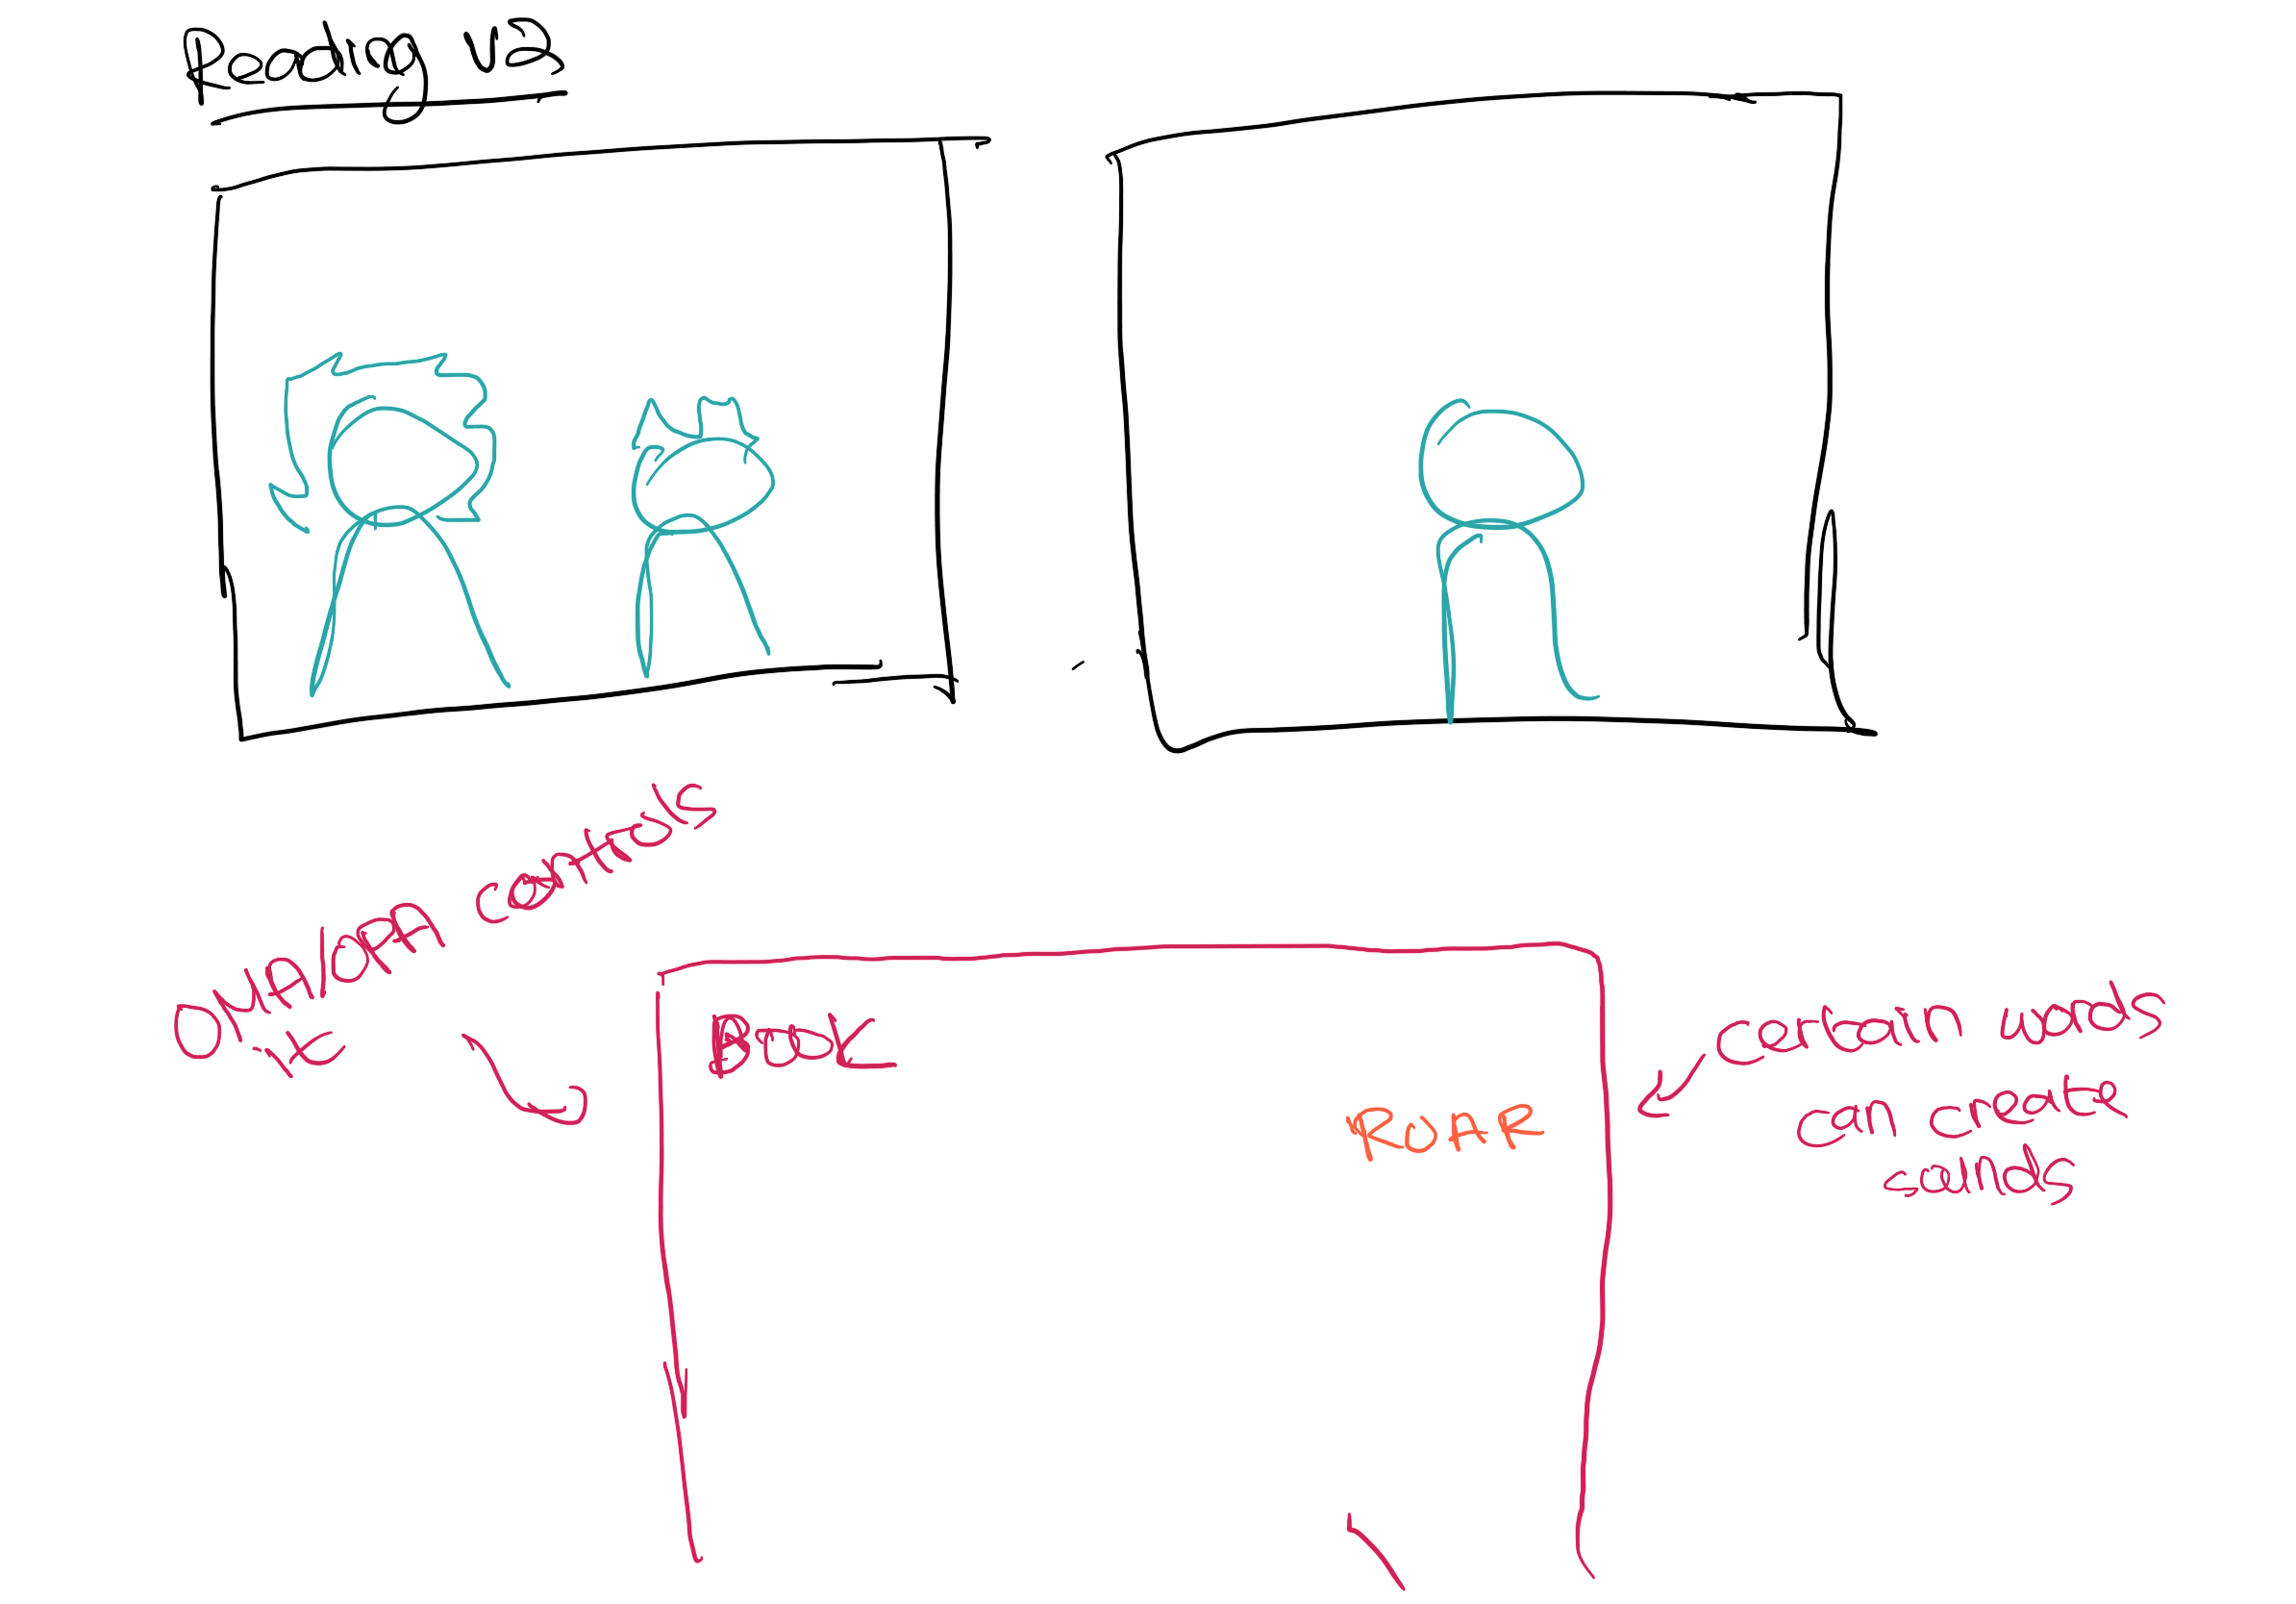 Reading v2
OMA/OPA controls
it
Book
ROAR
certain words
can create
sounds